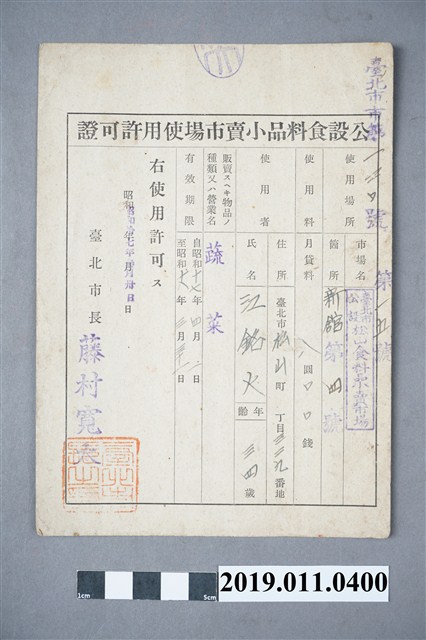 臺北市市場一三〇號
第一五號
公設食料品小賣市場使用許可證
使用場所
市場名
臺北市
公設松山食料品小賣市場
箇所
新館第四號
使用料
月貸料
八圓〇〇錢
使用者
住所
臺北市松山町 丁目三三九番地
氏名
江銘火
年齡
三四歲
販賣スヘキ物品ノ
種類又ハ營業名
蔬菜
有效期限
自昭和十七年四月一日
至昭和十八年三月三一日
右使用許可ス
昭和拾七年 月 日
臺北市長
藤村寬
1cm
5cm
2019.011.0400